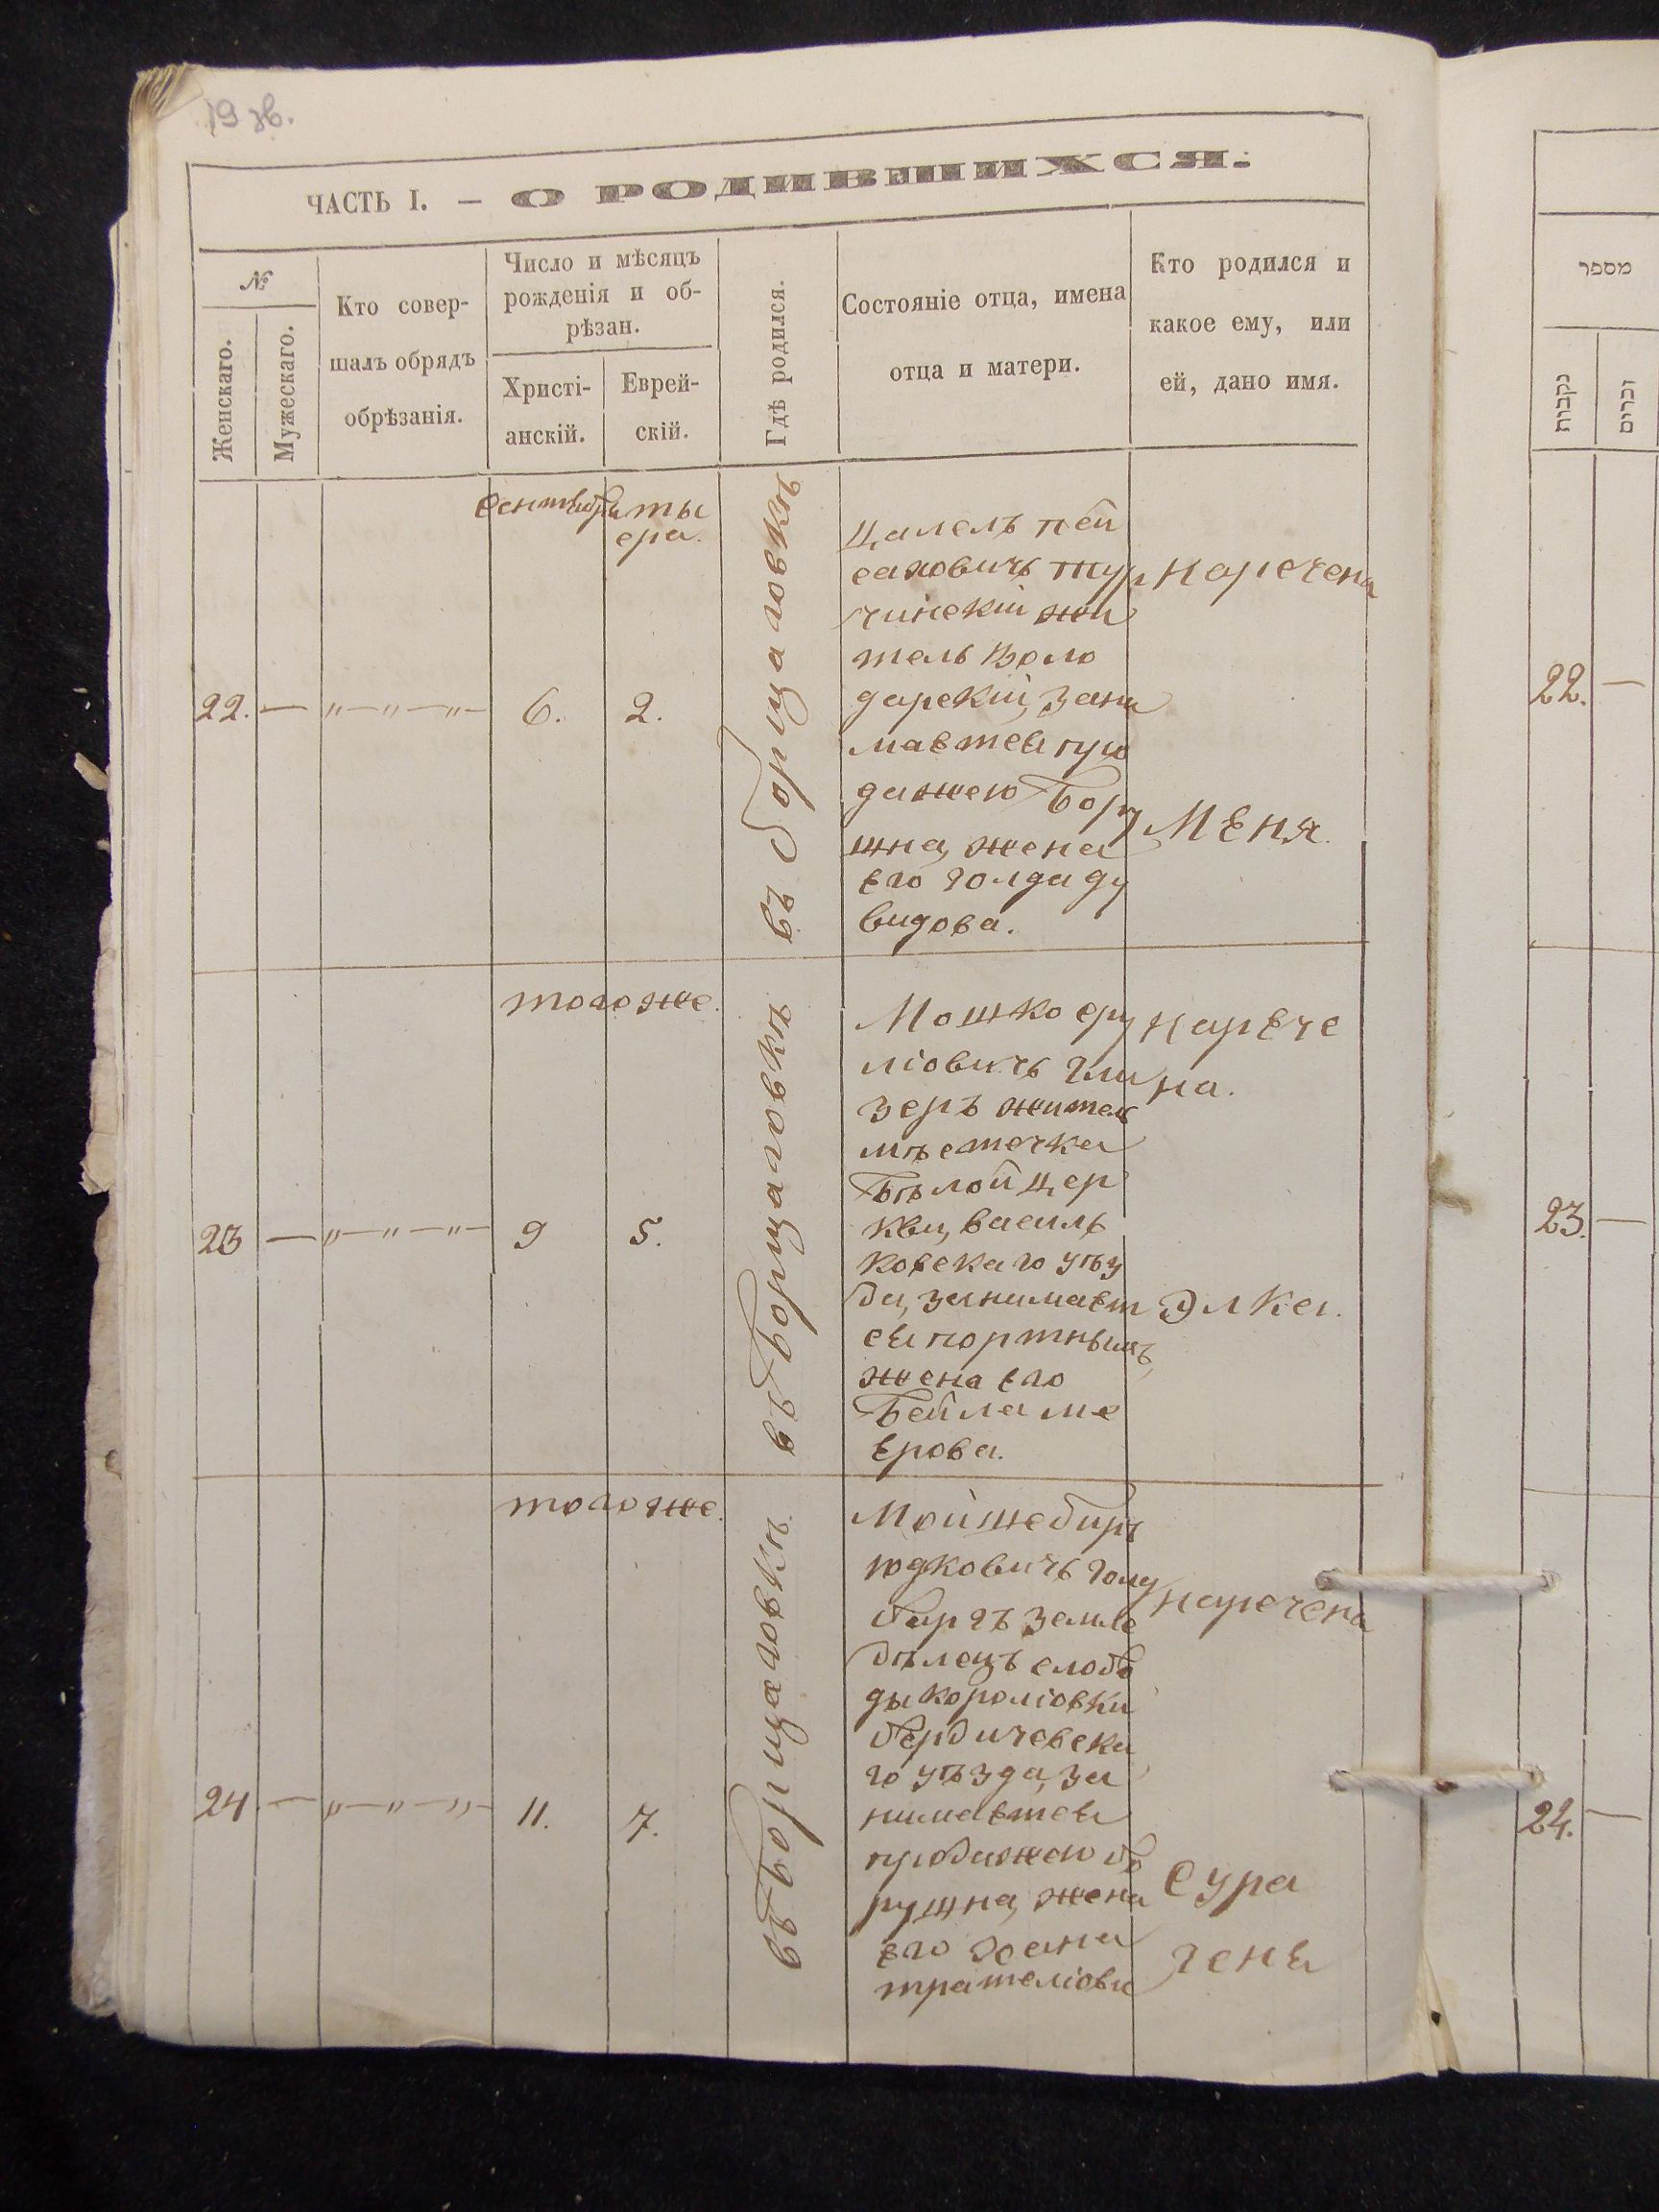 19 зв.
ЧАСТЬ I. — О РОДИВШИХСЯ:
№
Женскаго.
Мужескаго.
Кто совер-
шалъ обрядъ
обрѣзанія.
Число и мѣсяцъ
рожденія и об-
рѣзан.
Христі-
анскій.
Еврей-
скій.
Гдѣ родился.
Состояніе отца, имена
отца и матери.
Кто родился и
какое ему, или
ей, дано имя.
22. — „—„—„— 6. 2.
Сентября
ера.
въ Борщаговкѣ
Цалель пей
саховичъ тур
чинскій жи
тель Воло
дарскій, зани
мается про
дажею Бору
щна, жена
его Голда ду
видова.
наречена
Меня.
23 — „—„—„— 9 5.
тогоже.
въ Борщаговкѣ
Мошко сру
ліовичъ Гли
зеръ житель
мѣстечка
Бѣлой Цер
кви, василь
ковскаго уѣз
да, занимает
ся портнымъ,
жена его
Бейла ме
ерова.
нарече
на.
Элка.
24 — „—„—„— 11. 7.
тогоже.
въ Борщаговкѣ
Мойше беръ
юдковичъ Голд
бергъ земле
дѣлецъ слобо
ды короліовки
бердичевска
го уѣзда, за
нимается
продажею бо
рущна, жена
его
наречена
Сура
геня
מספר
נקבות
זכרים
22. —
23. —
24. —